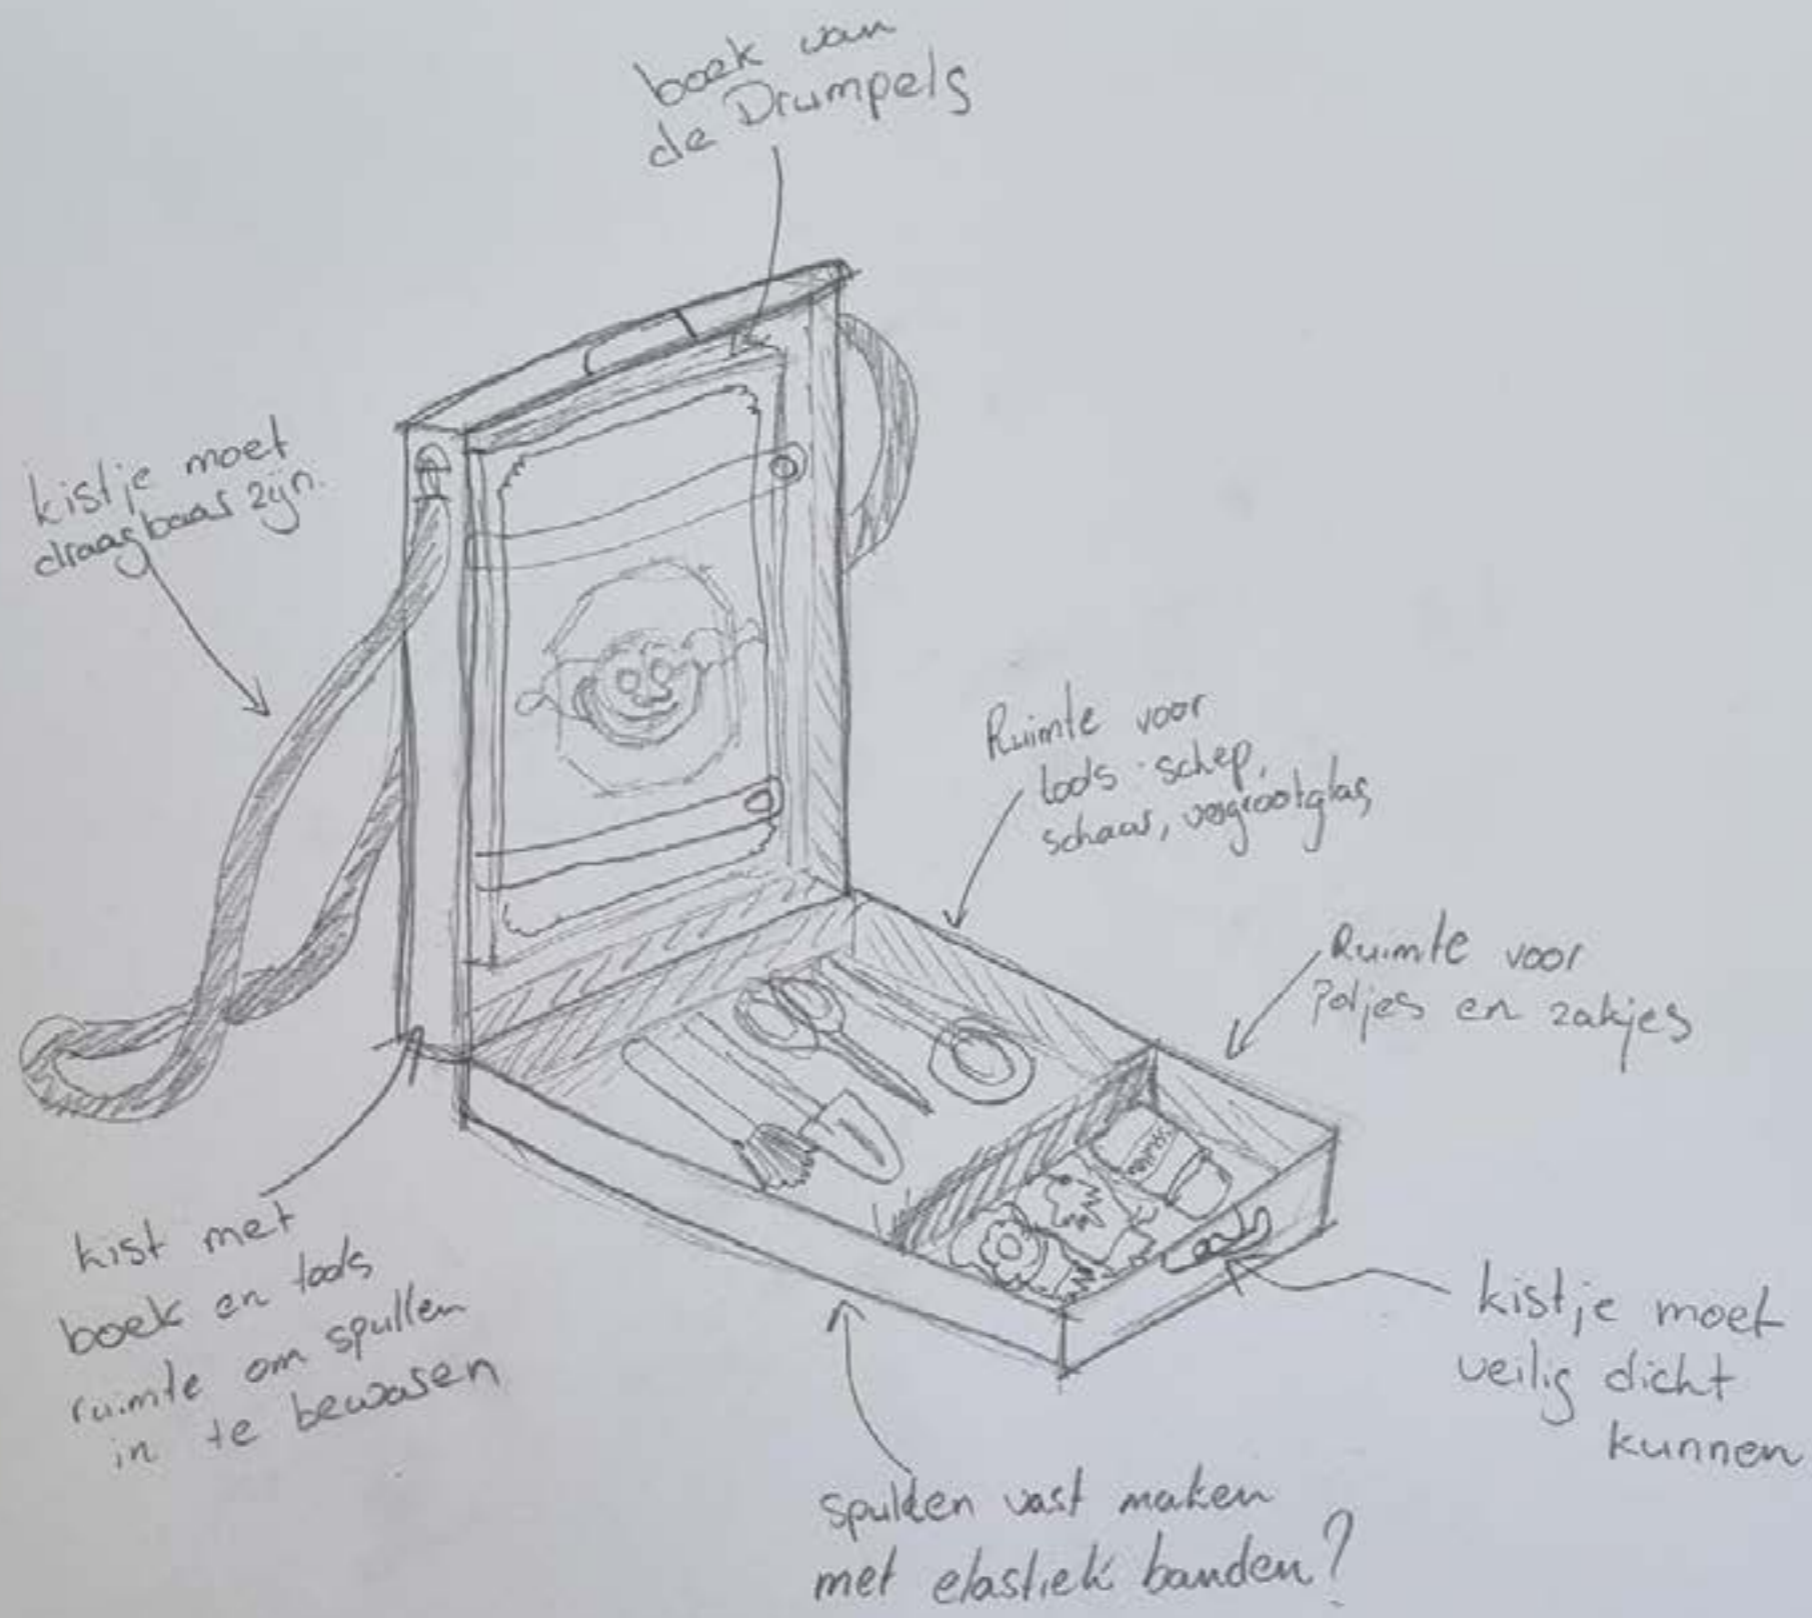 boek van
de Drumpels
kistje moet
draagbaar zijn.
Ruimte voor
tools: schep,
schaar, vergrootglas
Ruimte voor
Potjes en zakjes
kist met
boek en tools
ruimte om spullen
in te bewaren
kistje moet
veilig dicht
kunnen
spullen vast maken
met elastiek banden?